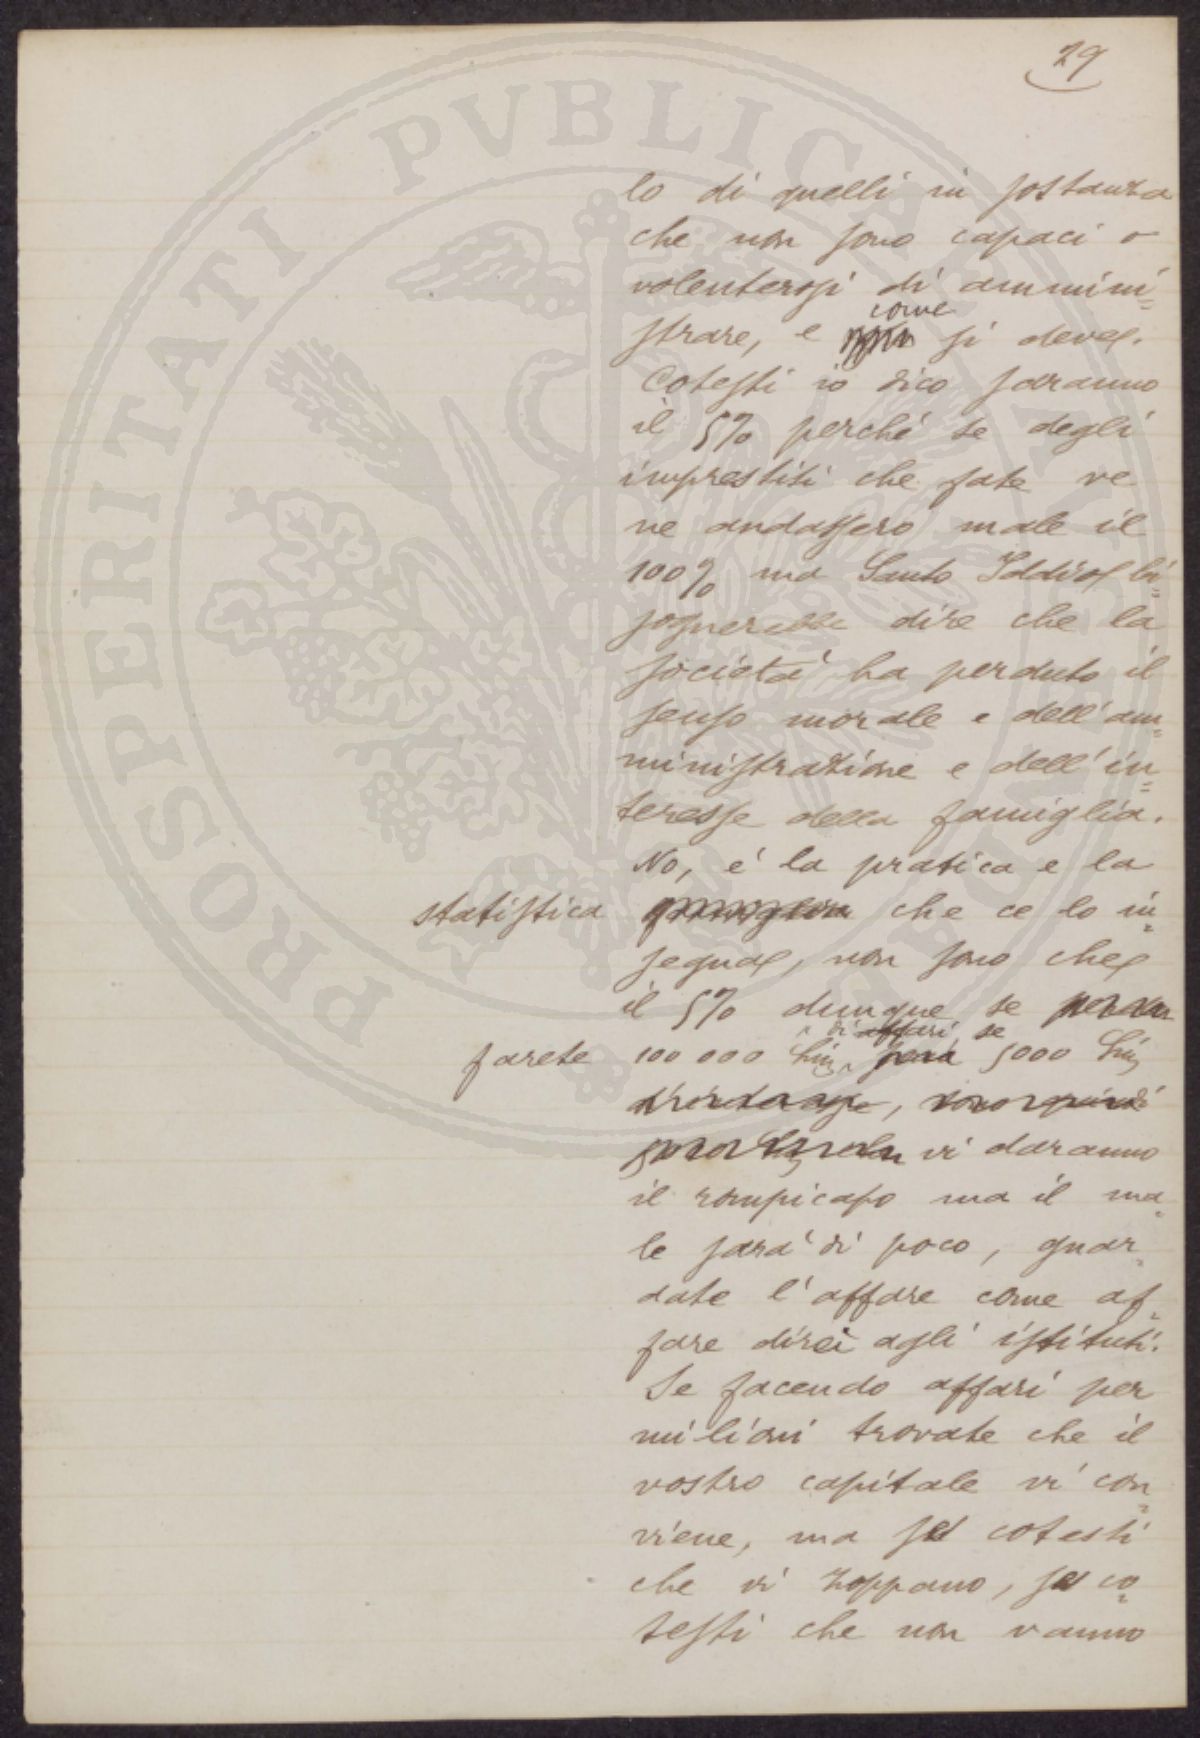 29
PROSPERITATI PVBLICAE AVGENDAE
lo di quelli in sostanza
che non sono capaci o
volenterosi di ammini=
strare, e come si deve.
Cotesti io dico saranno
il 5% perché se degli
imprestiti che fate ve
ne andassero male il
100% ma Santo Iddio bi=
sognerebbe dire che la
società ha perduto il
senso morale e dell'am=
ministrazione e dell'in=
teresse della famiglia.
No, é la pratica e la
statistica che ce lo in=
segna, non sono che
il 5% dunque se
farete 100 000 Lire di affari, se 5000 Lire
vi daranno
il rompicapo ma il ma=
le sarà di poco, guar=
date l'affare come af=
fare direi agli istituti.
Se facendo affari per
milioni trovate che il
vostro capitale vi con=
viene, ma se cotesti
che vi zoppano, se co=
testi che non vanno